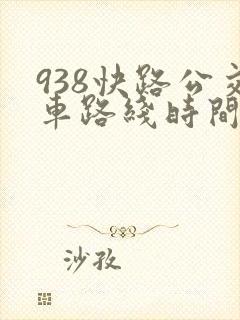 938快路公交
車路綫時間
沙孜